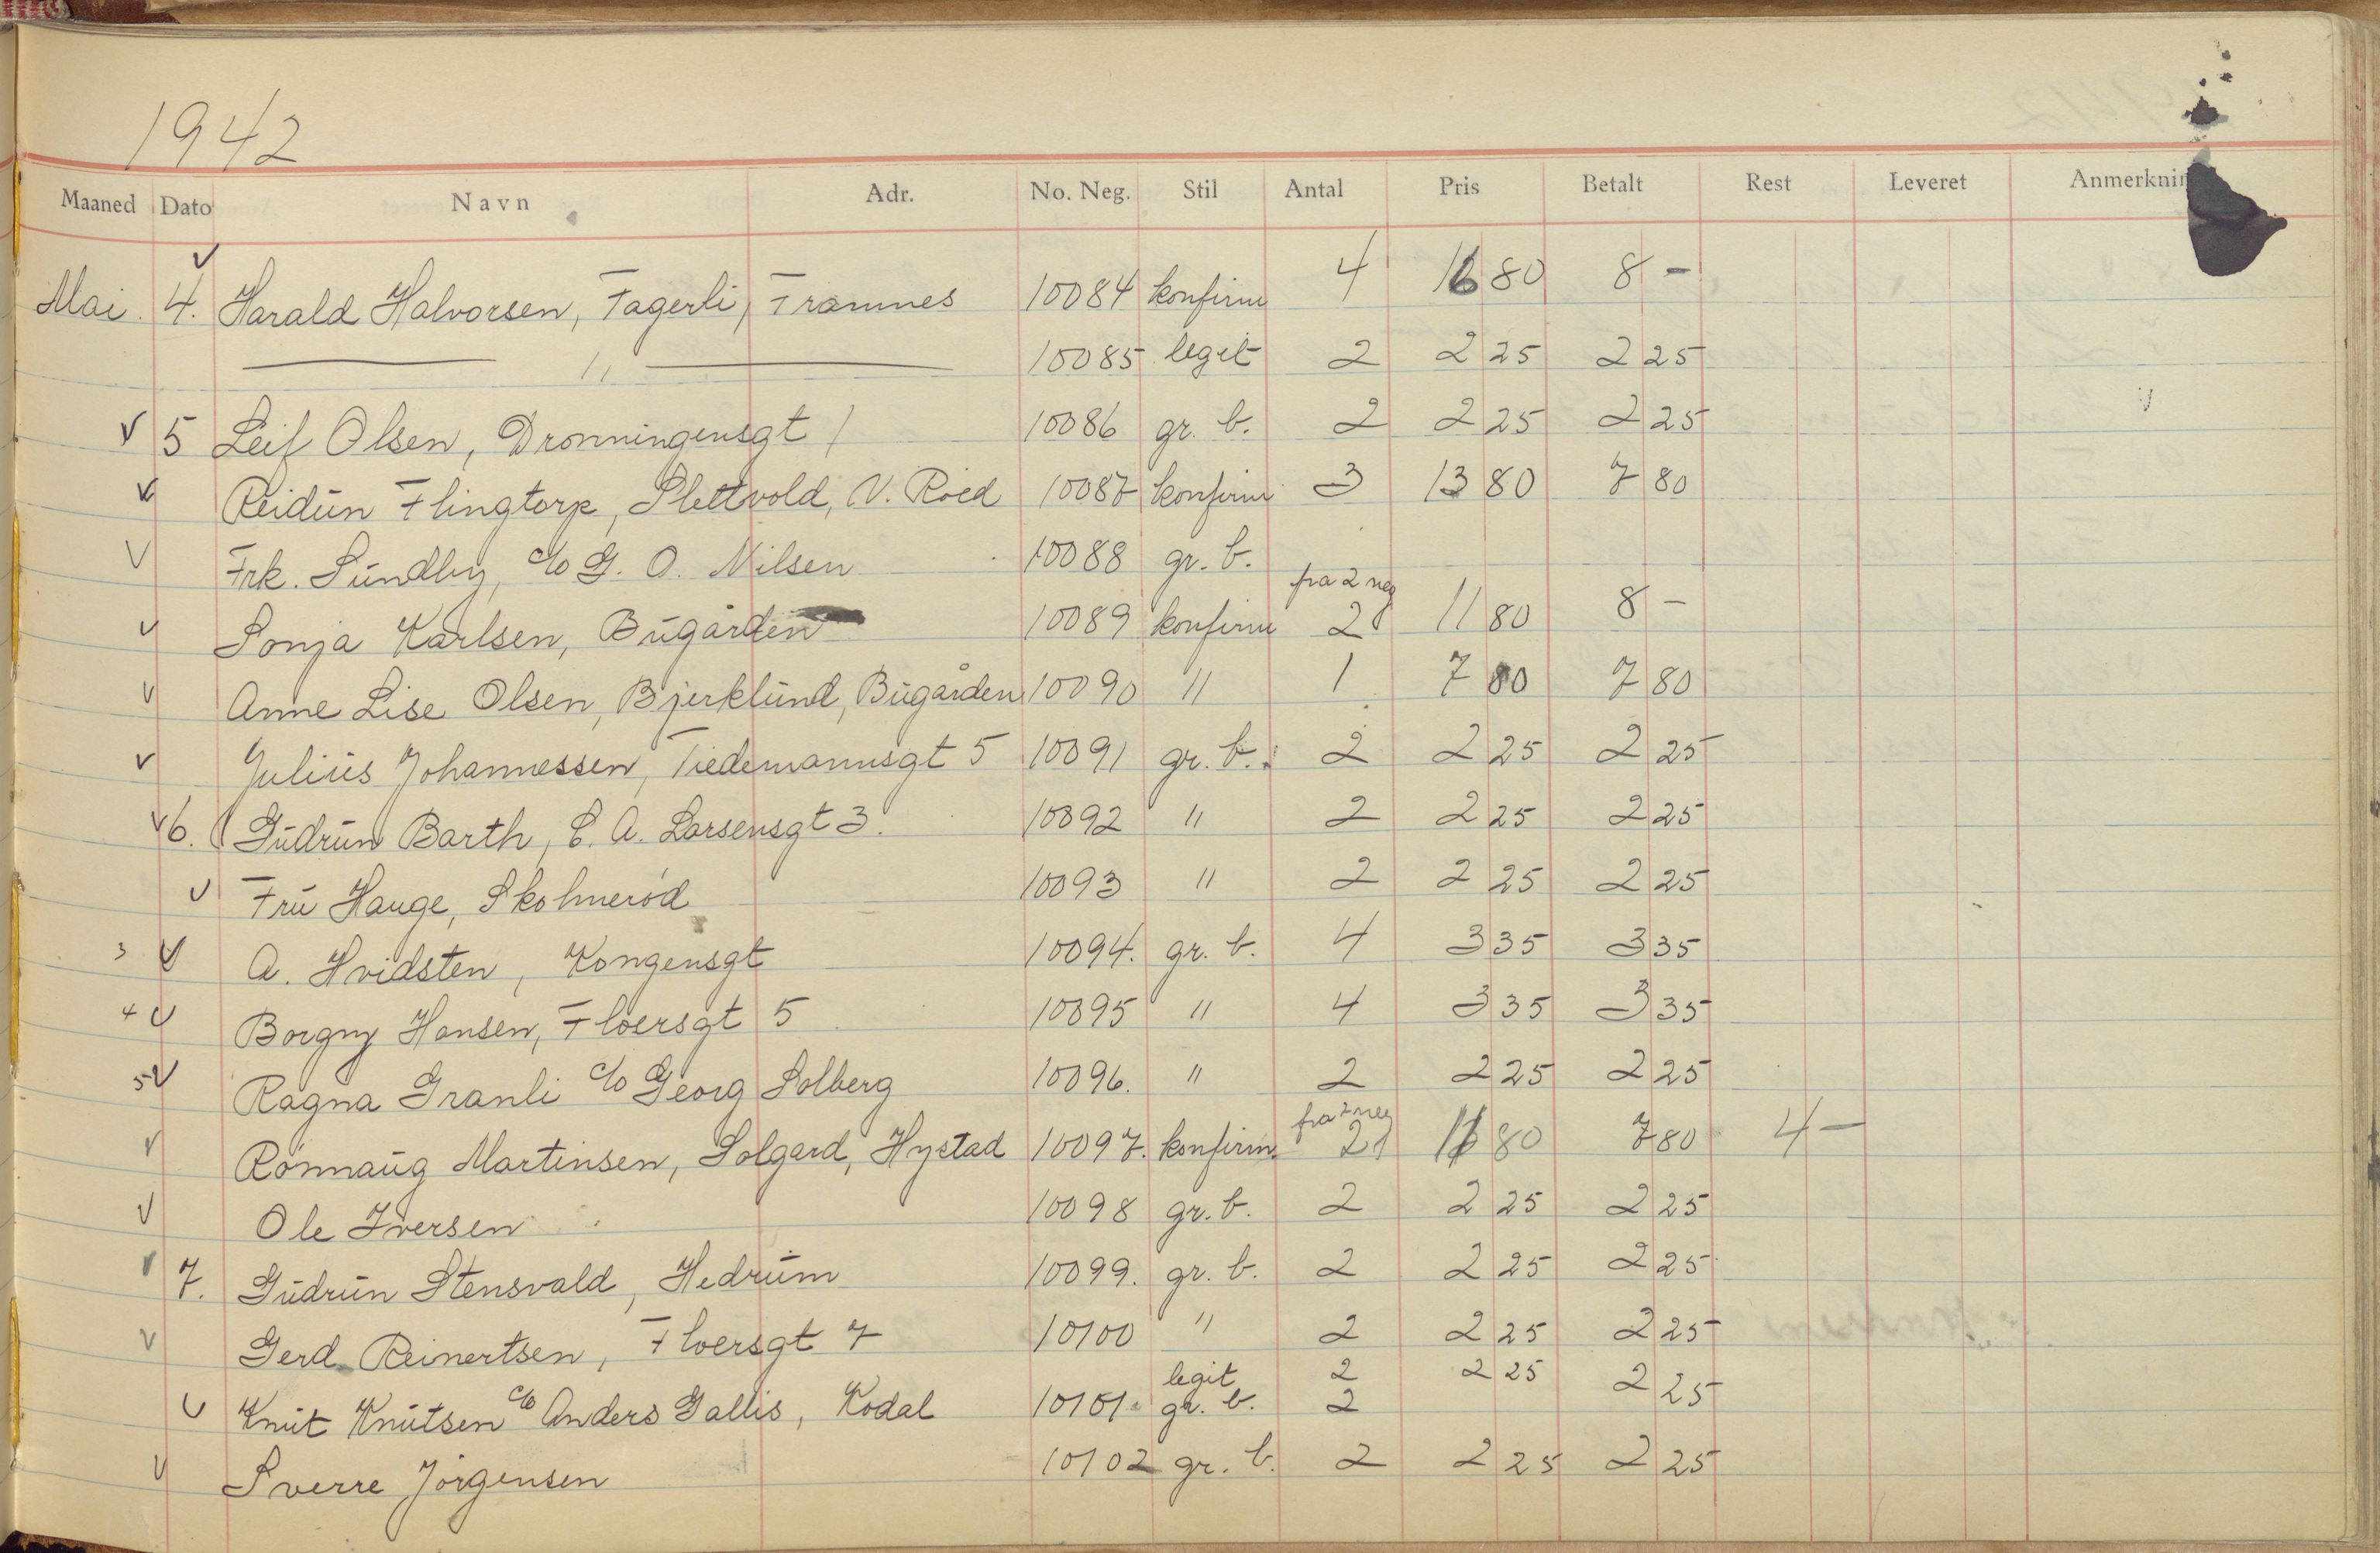 1942
Maaned Dato Navn Adr. No. Neg. Stil Antal Pris Betalt Rest Leveret Anmerknin
Mai 4. Harald Halvorsen, Fagerli, Framnes 10084 konfirm 4 16 80 8 -
— " — 10085 legit 2 2 25 2 25
5 Leif Olsen, Dronningensgt 1 10086 gr. b. 2 2 25 2 25
Reidun Flingtorp, Slettvold, N. Röed 10087 konfirm 3 13 80 7 80
Frk. Sundby, c/o G. O. Nilsen 10088 gr. b.
Sonja Karlsen, Bugården 10089 konfirm fra 2 neg 2 11 80 8 -
Anne Lise Olsen, Bjerklund, Bugården 10090 " 1 7 80 7 80
Julius Johannessen, Tiedemannsgt 5 10091 gr. b. 2 2 25 2 25
6. Gudrun Barth, C. A. Larsensgt 3. 10092 " 2 2 25 2 25
Fru Hauge, Skolmeröd 10093 " 2 2 25 2 25
3 A. Hvidsten, Kongensgt 10094. gr. b. 4 3 35 3 35
4 Borgny Hansen, Floersgt 5 10095 " 4 3 35 3 35
5 Ragna Granli c/o Georg Solberg 10096. " 2 2 25 2 25
Rönnaug Martinsen, Solgard, Hystad 10097. konfirm. fra 2 neg 2 11 80 7 80 4 -
Ole Iversen 10098 gr. b. 2 2 25 2 25
7. Gudrun Stensvald, Hedrum 10099. gr. b. 2 2 25 2 25
Gerd Reinertsen, Floersgt 7 10100 " 2 2 25 2 25
legit 2 2 25
Knut Knutsen c/o Anders Gallis, Kodal 10101. gr. b. 2 2 25
Sverre Jörgensen 10102 gr. b. 2 2 25 2 25